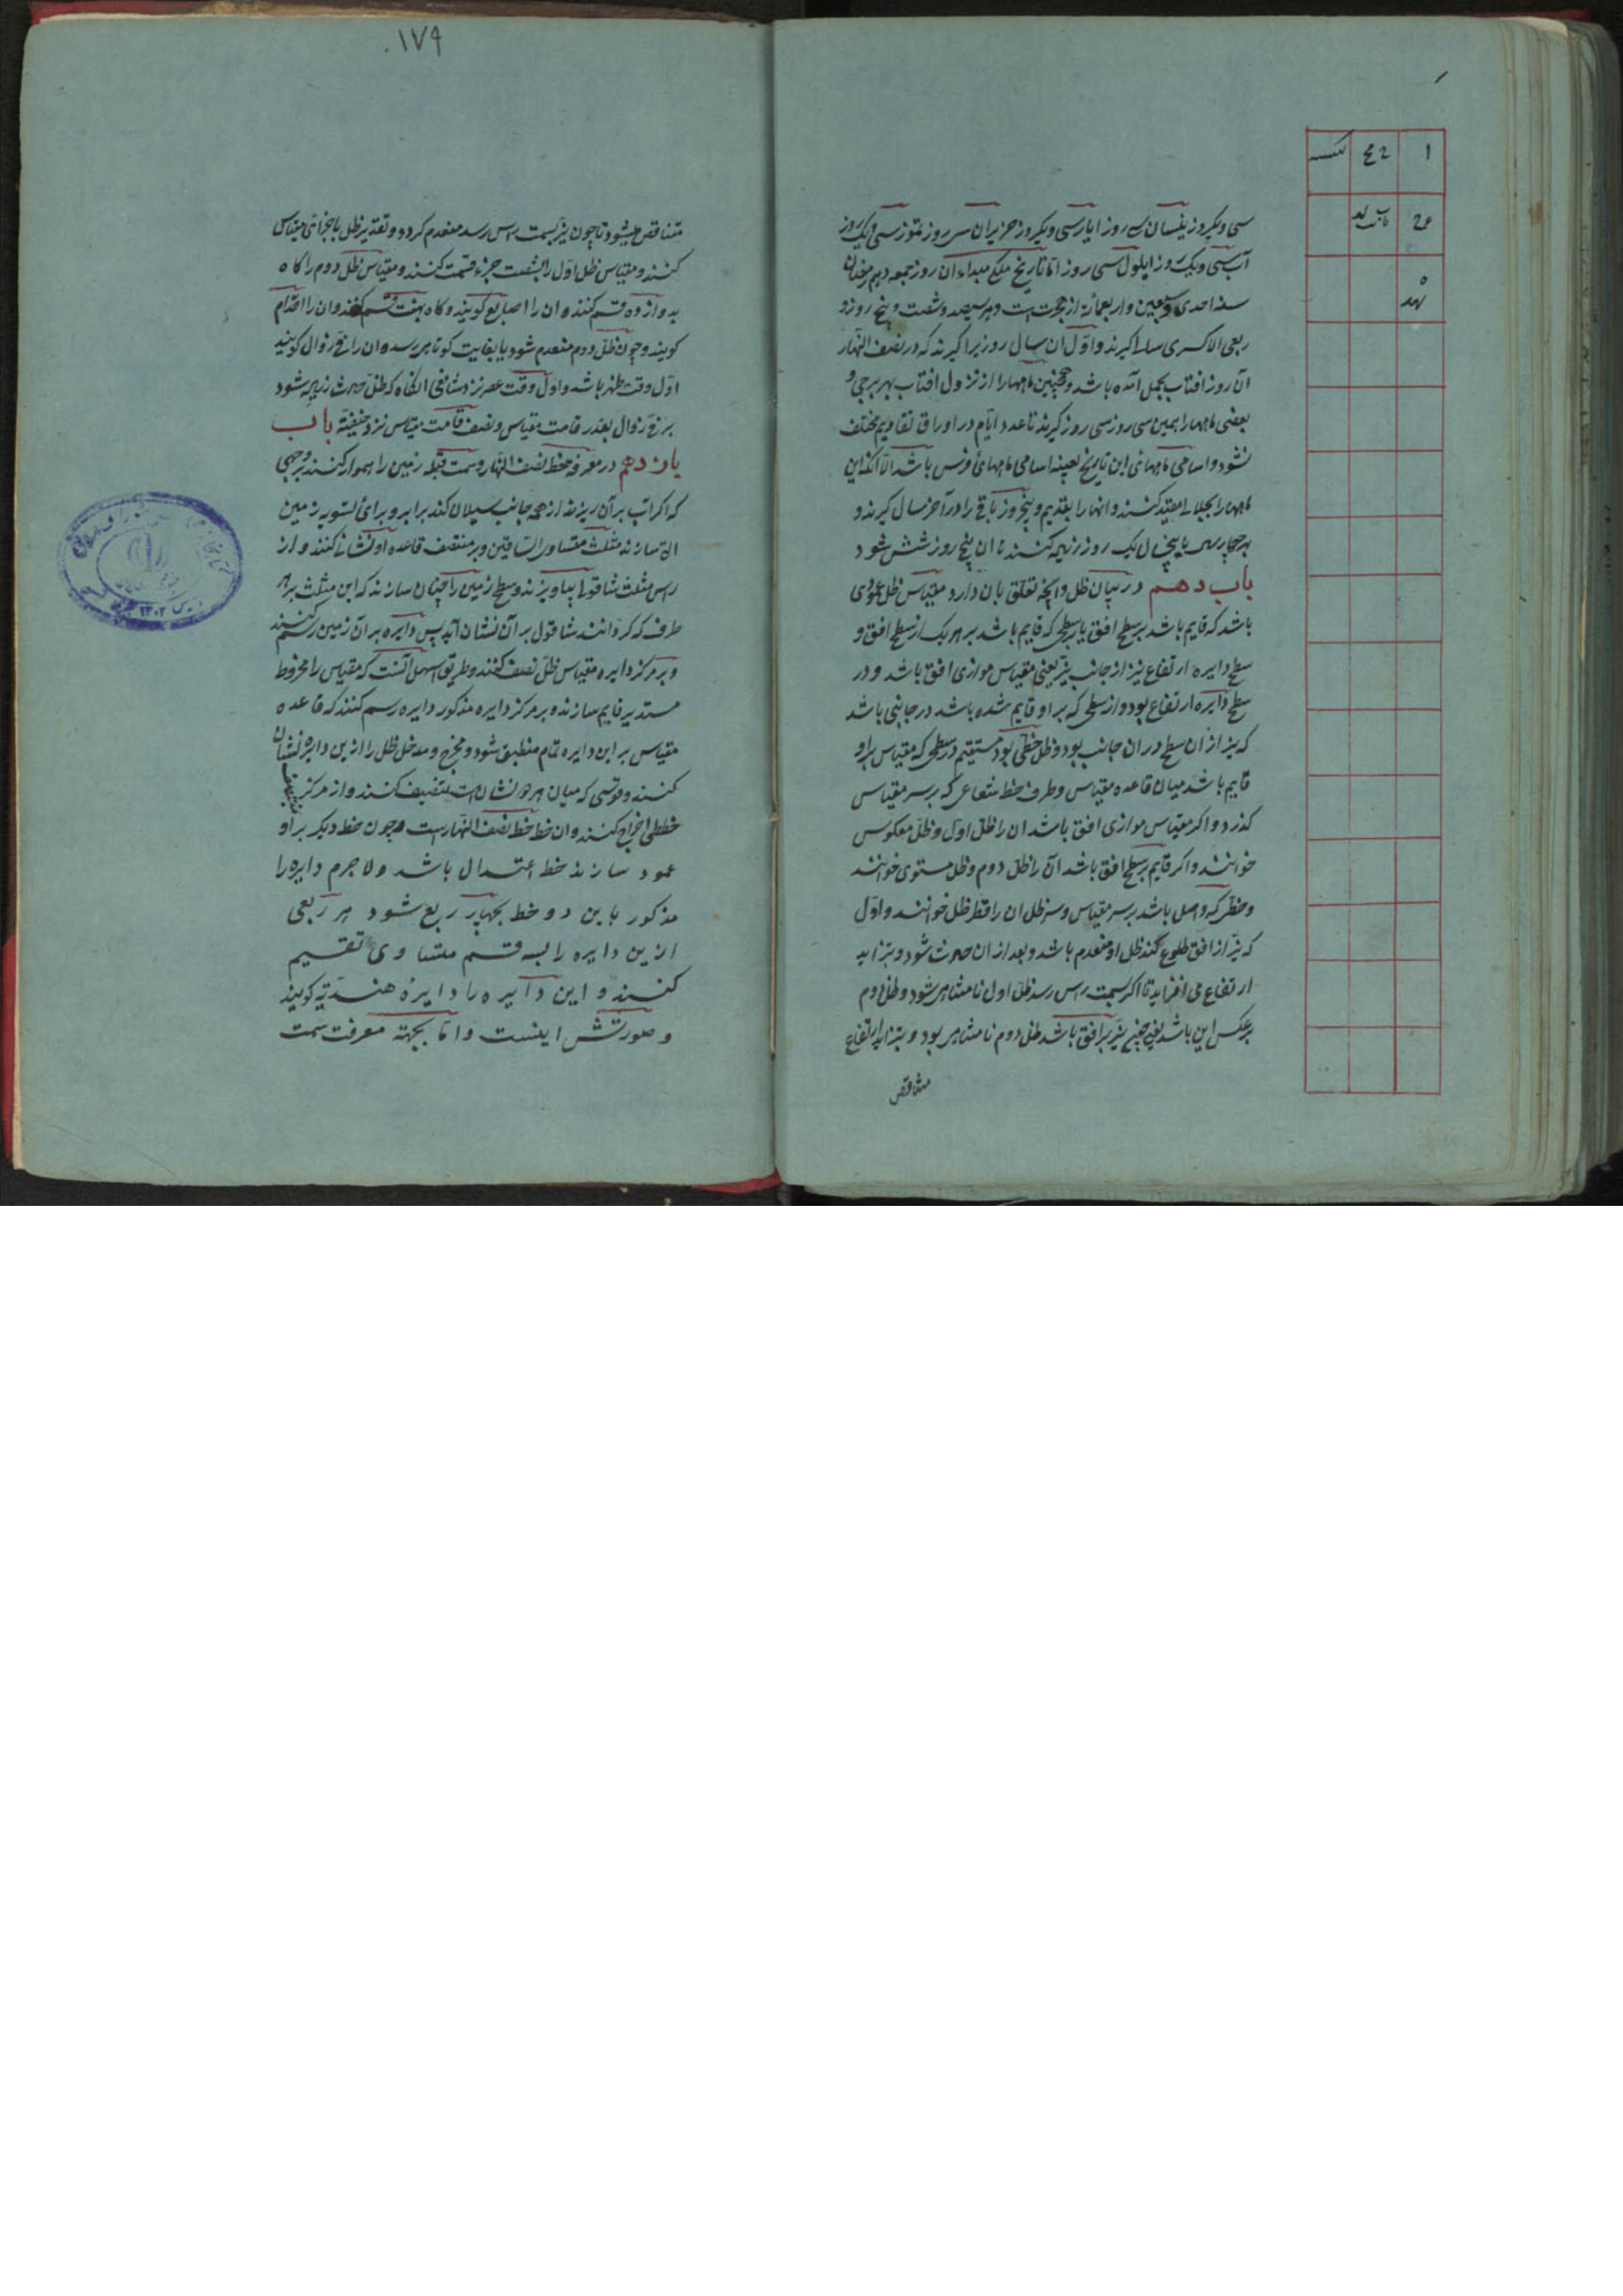 سی و یکروز نیسان سی روز ایار سی و یکروز حزیران سی روز تموز سی و یک روز
آب سی و یک روز ایلول سی روز اما تاریخ ملکی مبداء ان روز جمعه دهم رمضان
سنه احدی و سبعین و اربعمائة از هجرت است و هر سیصد و شصت و پنج روز و
ربعی الا کسری سالی گیرند و اول ان سال روز برا گیرند که در نصف النهار
آن روز افتاب بحمل آمده باشد و همچنین ماهها را از نزول افتاب بهر برجی و
بعضی ماهها را همین سی روز سی روز گیرند تا عدد ایام در اوراق تقاویم مختلف
نشود و اسامی ماههای این تاریخ بعینه اسامی ماههای فرس باشد الا انکه این
ماهها را بجلالی مقید کنند و انها را بقدیم و پنجروز باقی را در آخر سال گیرند و
بهر چهار سال یا پنج سال یک روز زیاده کنند تا ان پنج روز شش شود
باب دهم در بیان ظل و آنچه تعلق بان دارد مقیاس ظل عمودی
باشد که قایم باشد بر سطح افق یا بر سطحی که قایم باشد بر هر یک از سطح افق و
سطح دایره ارتفاع نیر از جانب نیر یعنی مقیاس موازی افق باشد و در
سطح دایره ارتفاع بود و از سطحی که بر او قایم شده باشد در جانبی باشد
که نیر از ان سطح در ان جانب بود و ظل خطی بود مستقیم در سطحی که مقیاس بر او
قایم باشد میان قاعده مقیاس و طرف خط شعاعی که بر سر مقیاس
گذرد و اگر مقیاس موازی افق باشد ان را ظل اول و ظل معکوس
خوانند و اگر قایم بر سطح افق باشد آن را ظل دوم و ظل مستوی خوانند
و خطی که واصل باشد بر سر مقیاس و سر ظل ان را قطر ظل خوانند و اول
که نیر از افق طلوع کند ظل او منعدم باشد و بعد از ان حادث شود و بتزاید
ارتفاع می افزاید تا اگر بسمت راس رسد ظل اول نامتناهی شود و ظل دوم
بر عکس این باشد یعنی چون نیر بر افق باشد ظل دوم نامتناهی بود و بتزاید ارتفاع
متناقص
۱۷۹
متناقص میشود تا چون نیر بسمت راس رسد منعدم گردد و تقدیر ظل باجزای مقیاس
کنند و مقیاس ظل اول را بشصت جزء قسمت کنند و مقیاس ظل دوم را گاه
بدوازده قسم کنند و ان را اصابع گویند و گاه بهفت قسم کنند و ان را اقدام
گویند و چون ظل دوم منعدم شود یا بغایت کوتاهی رسد و ان را فی زوال گویند
اول وقت ظهر باشد و اول وقت عصر نزد شافعی انگاه که ظل حادث زیاده شود
بر فی زوال بقدر قامت مقیاس و نصف قامت مقیاس نزد حنیفه باب
یازدهم در معرفة خط نصف النهار و سمت قبله زمین را هموار کنند بر وجهی
که اگر آب بر آن ریزند از همه جانب سیلان کند برابر و برای تسویه زمین
الة سازند مثلث متساوی الساقین و بر منتصف قاعده او نشانی کنند و از
راس مثلث شاقول بیاویزند و سطح زمین را چنان سازند که این مثلث بر هر
طرف که گردانند شاقول بر آن نشان آید پس دایره بر آن زمین رسم کنند
و بر مرکز دایره مقیاس ظل نصب کنند و طریق اسهل آنست که مقیاس را مخروط
مستدیر قایم سازند و بر مرکز دایره مذکور دایره رسم کنند که قاعده
مقیاس بر این دایره تمام منطبق شود و مخرج و مدخل ظل را ازین دایره نشان
کنند و قوسی که میان هر دو نشان است تنصیف کنند و از مرکز بمنتصف
خطی اخراج کنند و ان خط خط نصف النهار است و چون خط دیگر بر او
عمود سازند خط اعتدال باشد و لا جرم دایره را
مذکور باین دو خط بچهار ربع شود هر ربعی
ازین دایره را بسه قسم متساوی تقسیم
کنند و این دایره را دایرهٔ هندیه گویند
و صورتش اینست و اما بجهة معرفت سمت